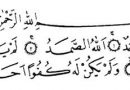 اللهِ الرَّحْمٰنِ
اَللهُ الصَّمَدُ ۝ لَمْ
وَلَمْ يَكُنْ لَهُ كُفُوًا